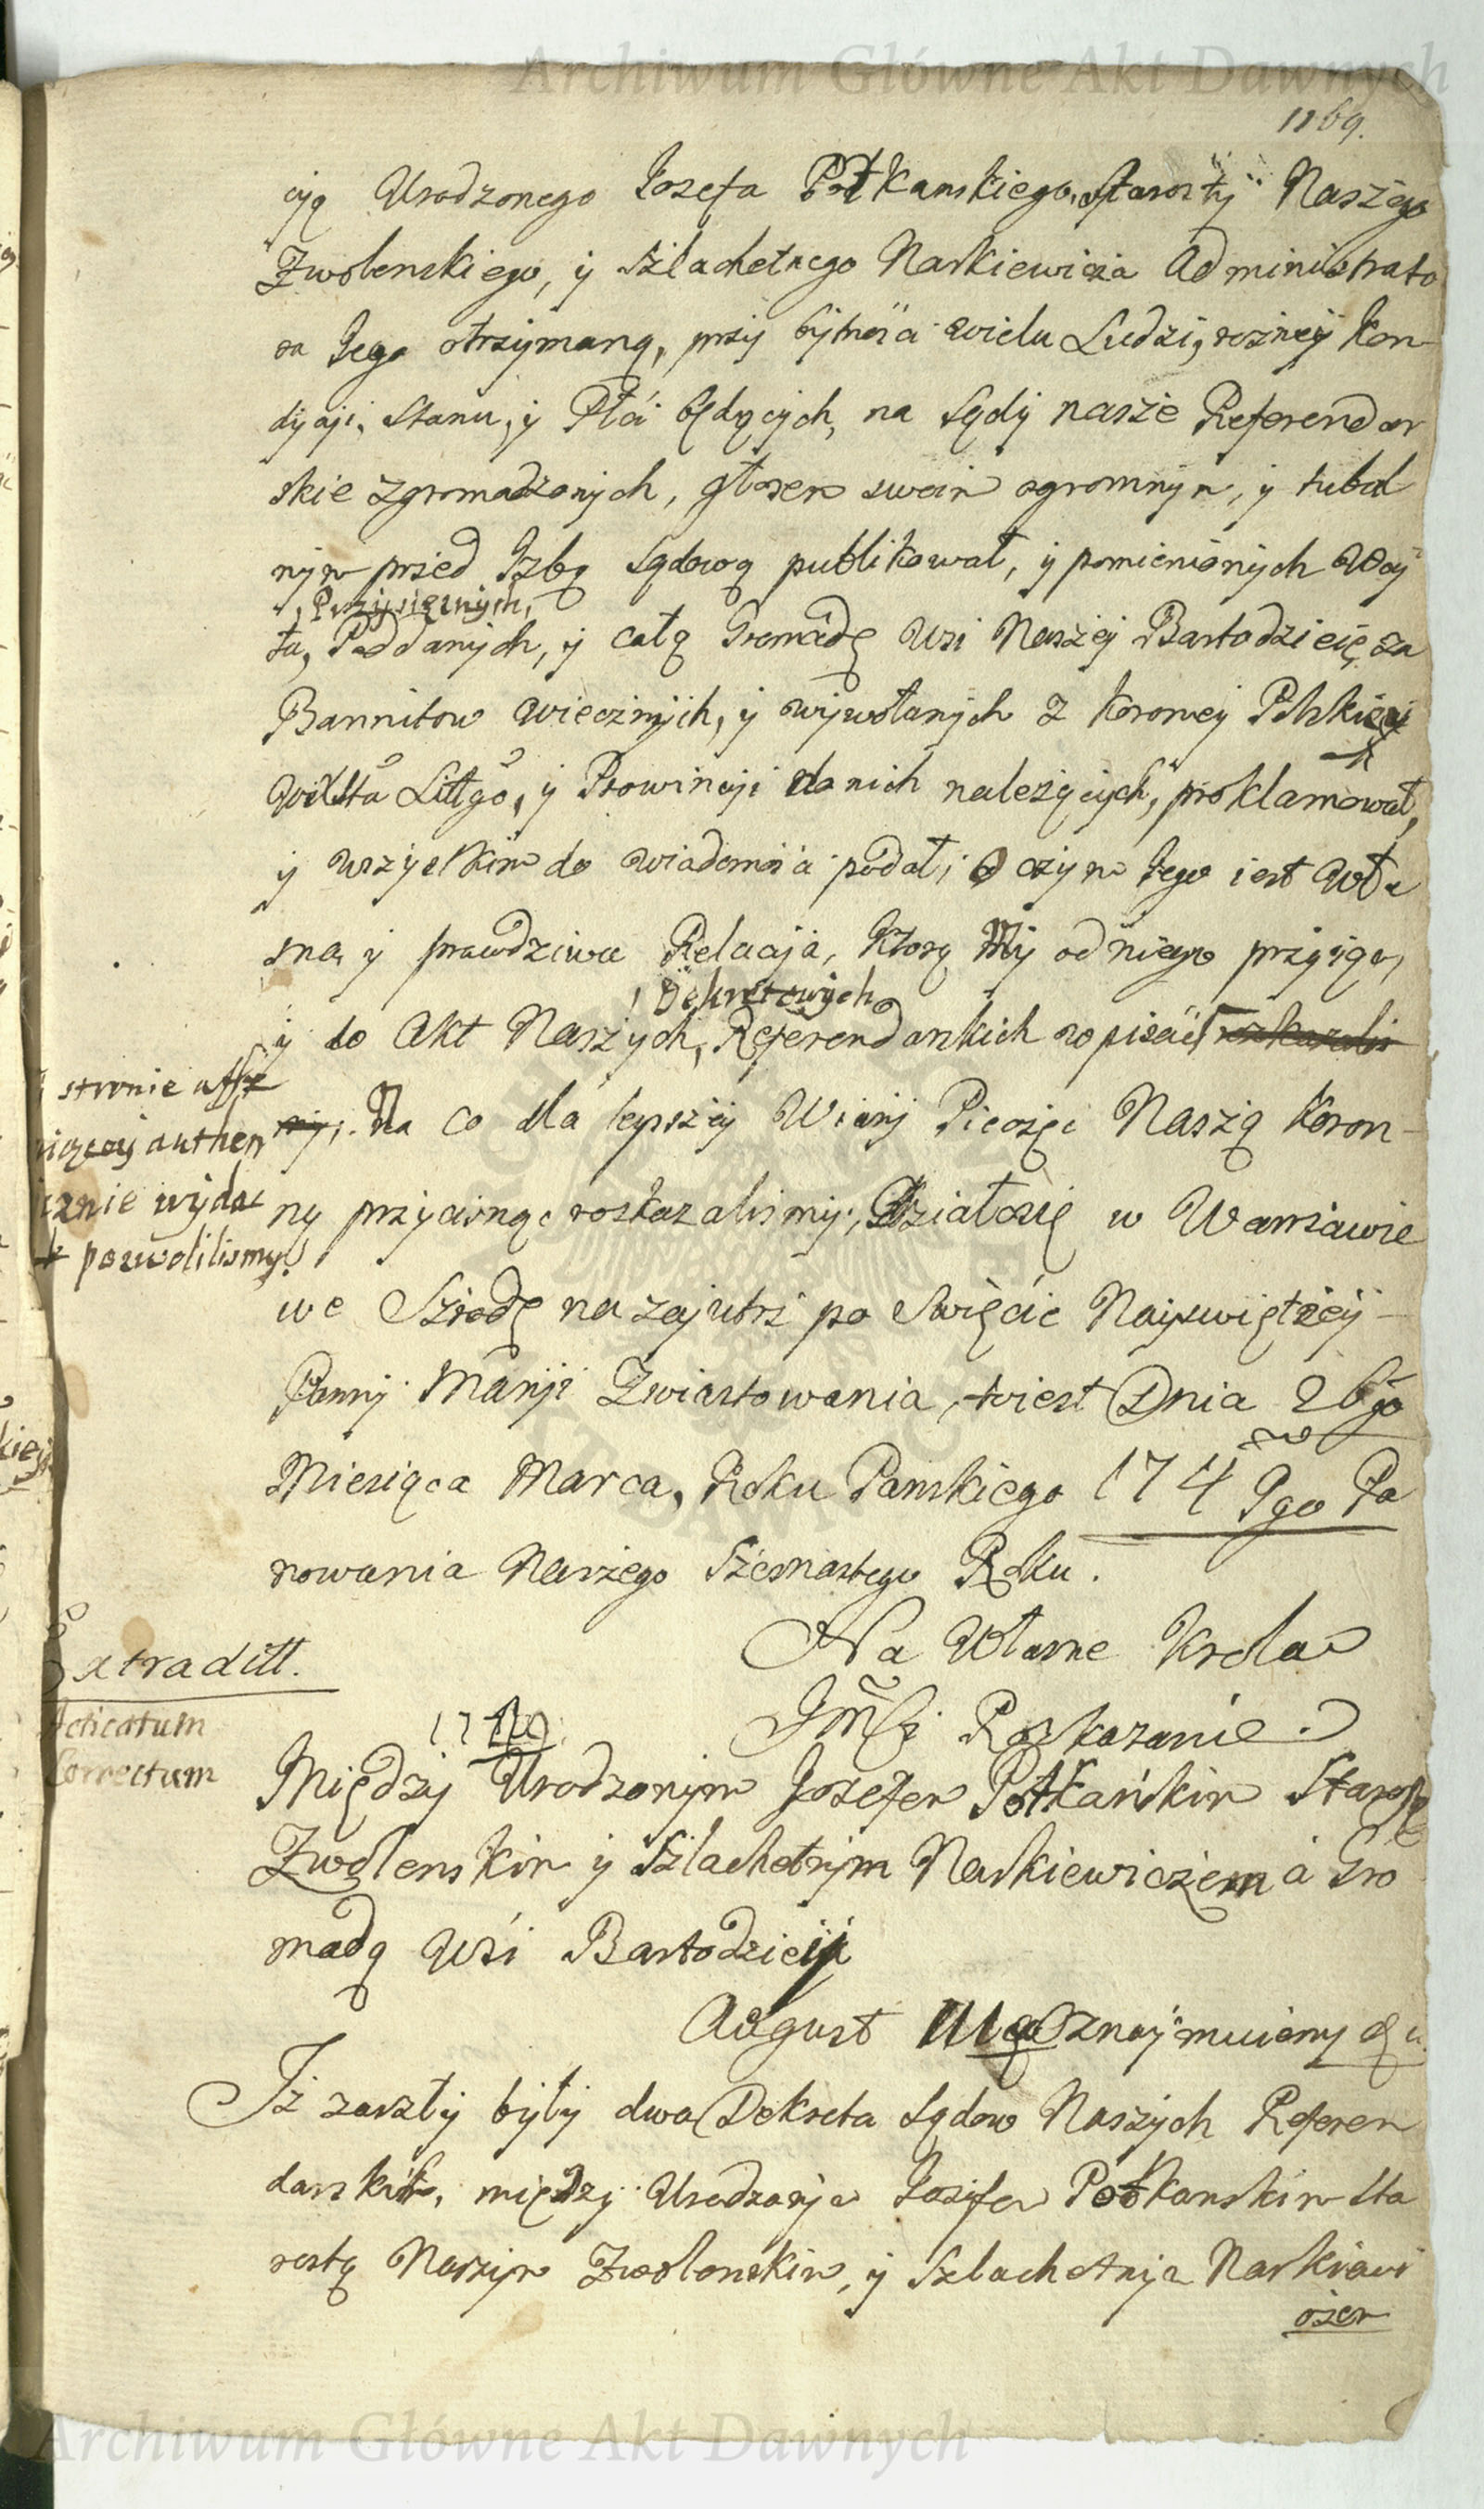 Archiwum Główne Akt Dawnych
1169.
cyą Urodzonego Iozefa Potkanskiego, Starosty Naszego
Zwolenskiego, y Szlachetnego Narkiewicza Administrato
ra Iego otrzymaną, przy bytnosci wielu Ludzi, rozney Kon-
dycyi, Stanu, y Płci będących, na Sądy nasze Referendar
skie zgromadzonych, głosem swoim ogromnym, y tubal
nym przed Izbą Sądową publikował, y pomienionych Woy
, Przysięznych,
ta, Poddanych, y całą Gromadę Wsi Naszey Bartodzieię za
Bannitow wiecznych, y wywołanych z Korony Polskiey
WXstă Littgŏ, y Prowincyi do nich nalezących, proklamował,
y wszystkim do wiadomosci podał; O czym Iego iest Wła
sna, y prawdziwa Relacya, Ktorą My od niego przyięą,
, Dekretowych
y do Akt Naszych, Referendarskich wpisać rozkazalis
my; Na co dla lepszey Wiary Pieczęc Naszą Koron-
stronie affe
niącey authen
icznie wydać
pozwolilismy
ną przycisnąc roskazalismy; Działosię w Warszawie
we Szrodę nazajutrz po Swięcie Nayswiętszey -
Panny Maryi Zwiastowania, to iest Dnia 26go
Miesiąca Marca, Roku Panskiego 1749go Pa
nowania Naszego Szesnastego Roku.
Na Własne Krola
JMsci Roskazanie.
Extraditt.
Acticatum
Correctum
1749
Między Urodzonym Jozefem Potkańskim Starostą
Zwolenskim y Szlachetnym Narkiewiczem a Gro
madą Wsi Bartodzieii
August IIIci Oznaymuiemy &c.
Iż zaszły były dwa Dekreta Sądow Naszych Referen
darskich, między Urodzonym Jozefem Potkanskim Sta
rostą Naszym Zwolenskim, y Szlachetnym Narkiewi
czem
Archiwum Główne Akt Dawnych